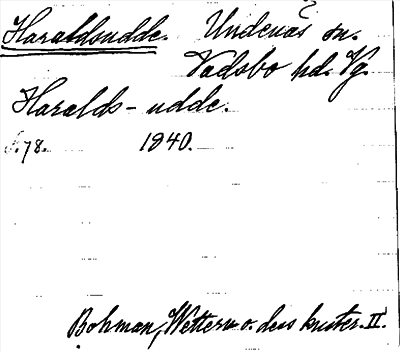 Haraldsudde. Undenäs sn.
Vadsbo hd. Vg.
Haralds-udde.
S. 78. 1840.
Bohman, Wettern o. dess kuster. II.